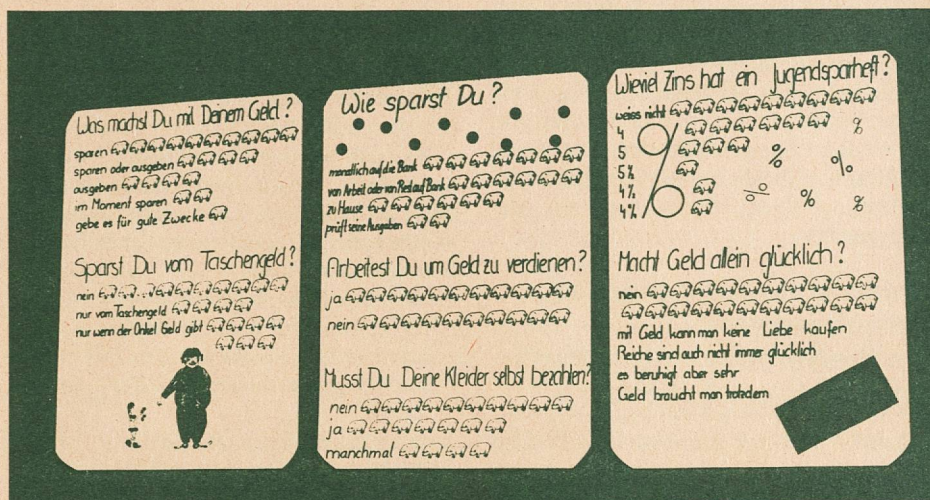 Was machst Du mit Deinem Geld?
sparen
sparen oder ausgeben
ausgeben
im Moment sparen
gebe es für gute Zwecke
Sparst Du vom Taschengeld?
nein
nur vom Taschengeld
nur wenn der Onkel Geld gibt
Wie sparst Du?
monatlich auf die Bank
von Arbeit oder von Rest auf Bank
zu Hause
prüft seine Ausgaben
Arbeitest Du um Geld zu verdienen?
ja
nein
Musst Du Deine Kleider selbst bezahlen?
nein
ja
manchmal
Wieviel Zins hat ein Jugendsparheft?
weiss nicht
4
5
5½
4½
4¾
%
% % %
% % %
Macht Geld allein glücklich?
nein
mit Geld kann man keine Liebe kaufen
Reiche sind auch nicht immer glücklich
es beruhigt aber sehr
Geld braucht man trotzdem